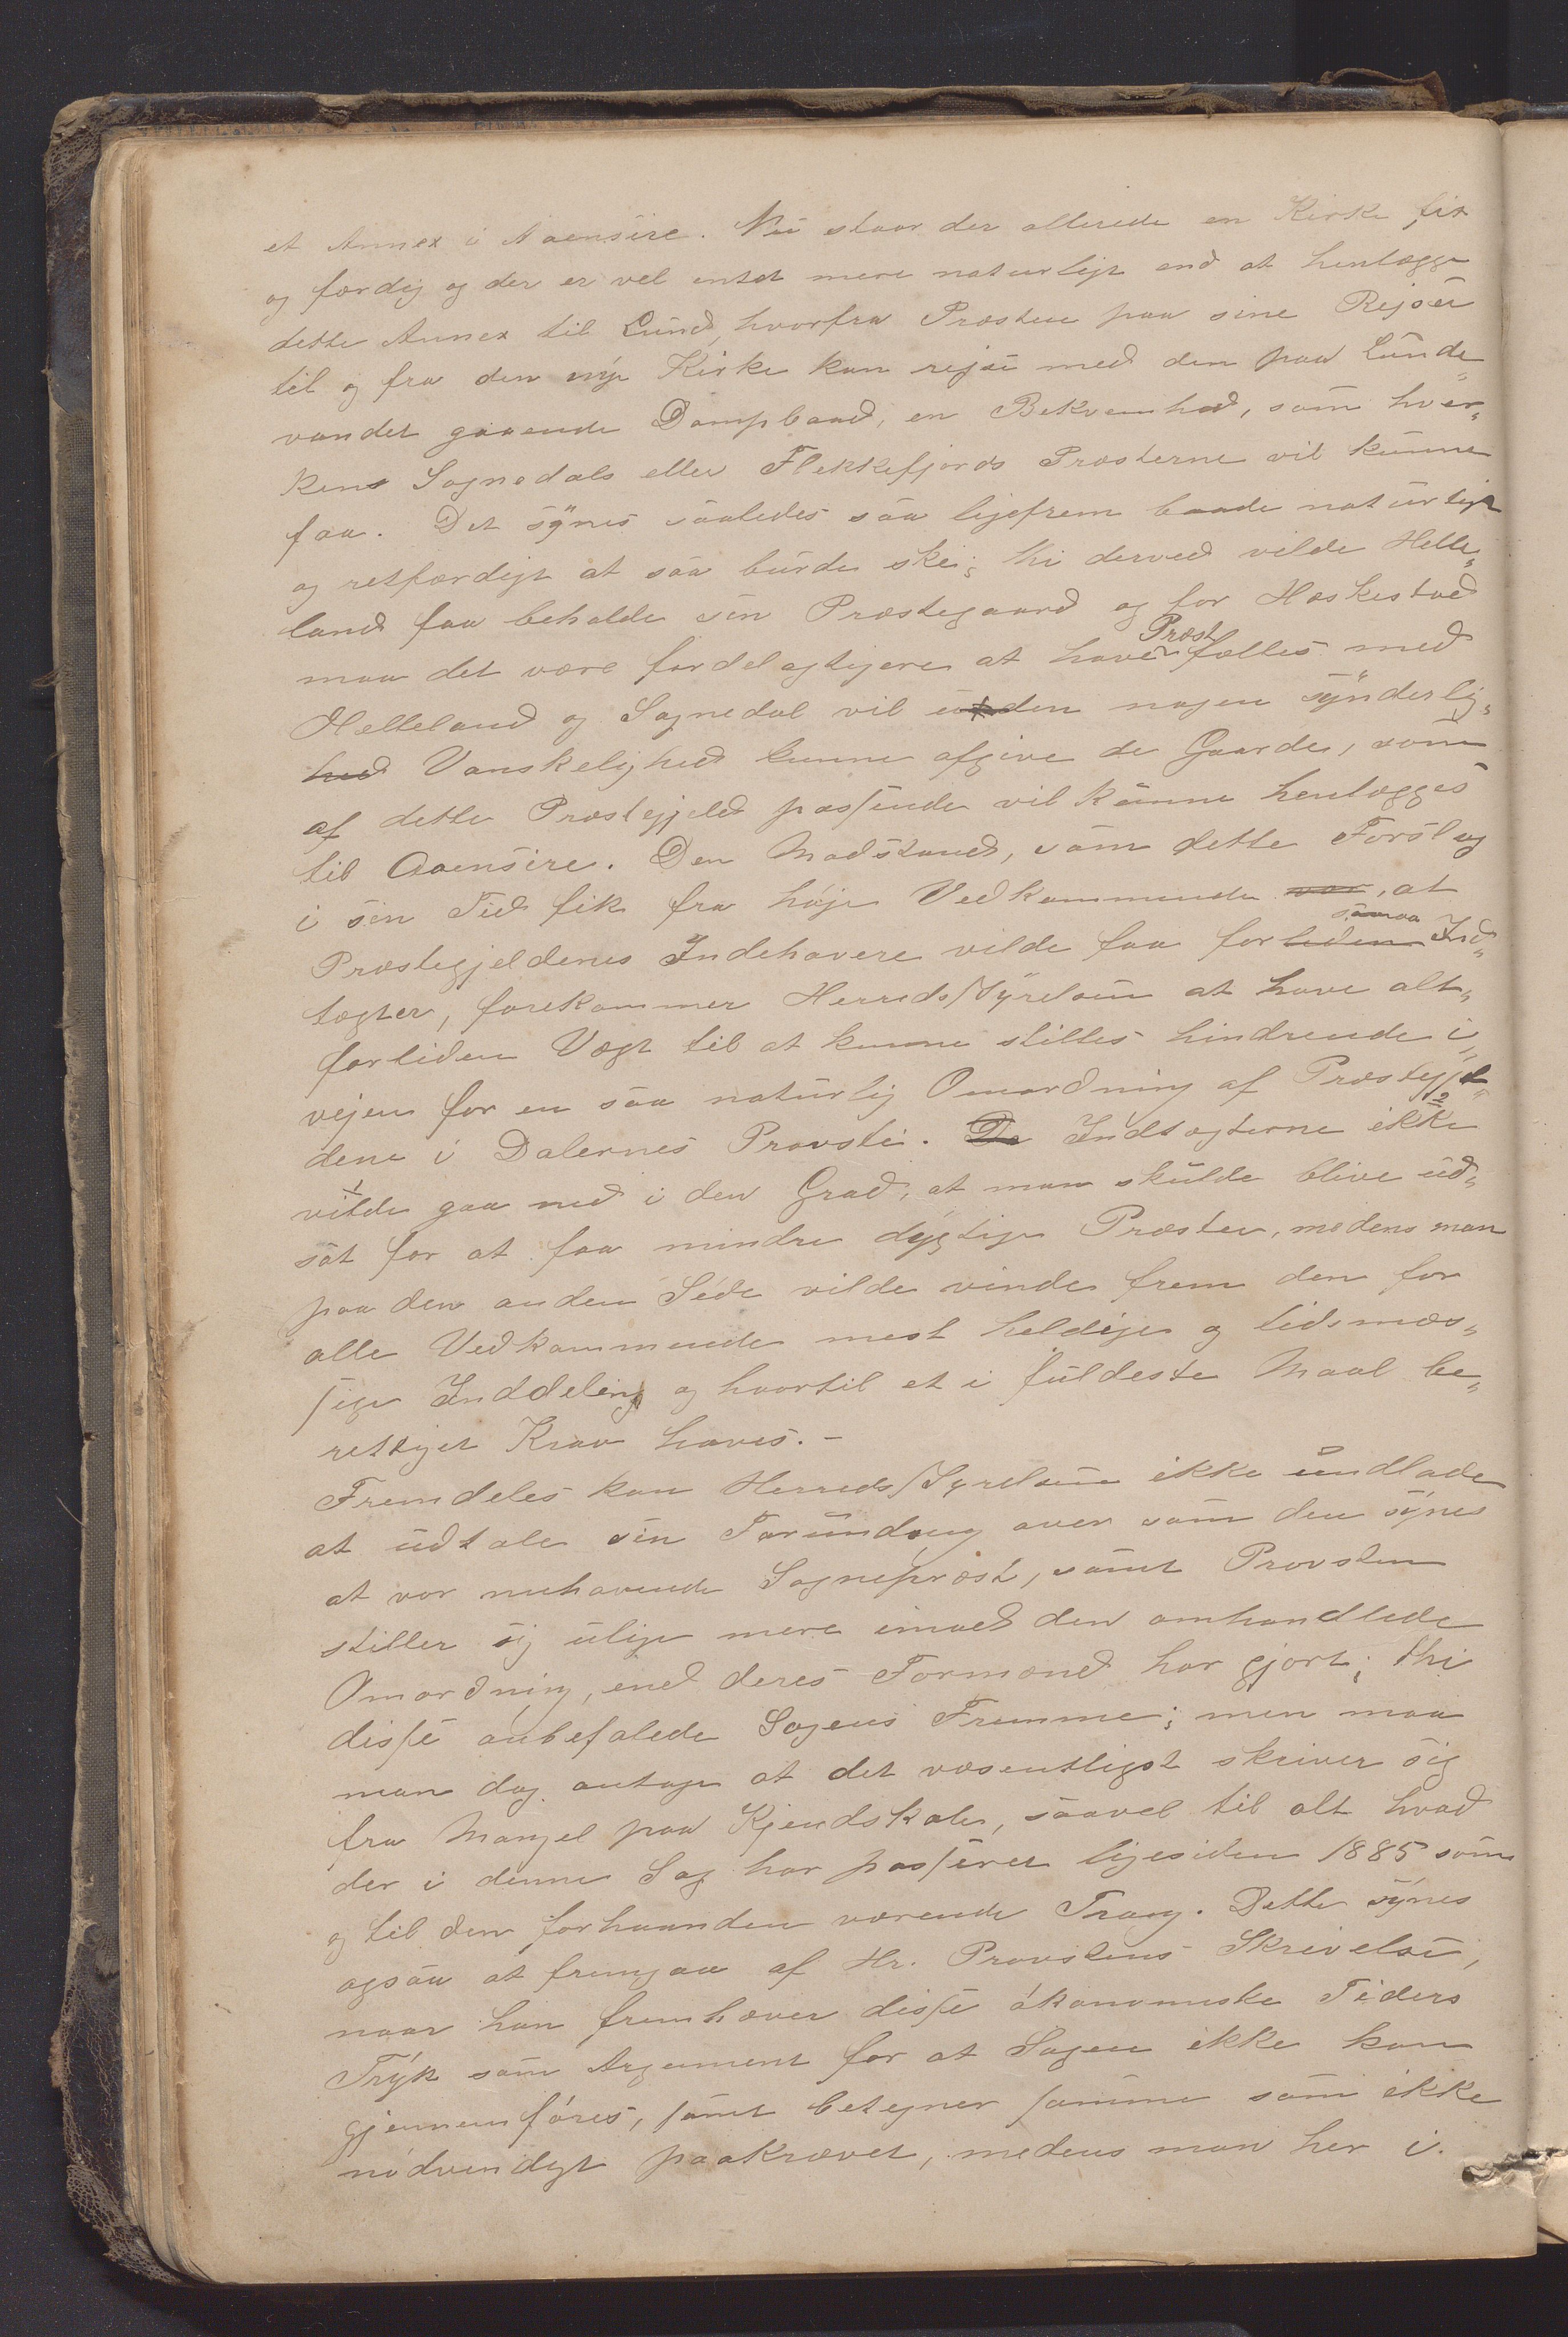 et Annex i Aaensire. Nu staar der allerede en Kirke fix
og færdig og der er vel intet mere naturligt end at henlægge
dette Annex til Lund, hvorfra Præsten paa sine Rejser
til og fra den nye Kirke kan rejse med den paa Lunde„
vandet gaaende Dampbaad, en Bekvemhed, som hver„
ken Sognedals eller Flekkefjords Præsterne vil kunne
faa. Det synes saaledes saa ligefrem baade naturligt
og retfærdigt at saa burde ske; thi derved vilde Helle„
land faa beholde sin Præstegaard og for Heskestad
maa det være fordelagtigere at have Præst fælles med
Helleland og Sognedal vil uden nogen synderlig„
hed Vanskelighed kunne afgive de Gaarde, som
af dette Præstegjeld passende vil kunne henlægges
til Aaensire. Den Modstand, som dette Forslag
i sin Tid fik fra høje Vedkommende var, at
Præstegjeldenes Indehavere vilde faa for liden smaa Ind„
tægter, forekommer Herredsstyrelsen at have alt„
forliden Vægt til at kunne stilles hindrende i
vejen for en saa naturlig Omordning af Præstegjel„
dene i Dalernes Provsti. De Indtægterne ikke
vilde gaa ned i den Grad, at man skulde blive ud„
sat for at faa mindre dygtige Præster, medens man
paa den anden Side vilde vinde frem den for
alle Vedkommende mest heldige og tidsmæs„
sige Inddeling og hvortil et i fuldeste Maal be„
rettiget Krav haves. -
Fremdeles kan Herredsstyrelsen ikke undlade
at udtale sin Forundring over som den synes
at vor nuhavende Sognepræst, samt Provsten
stiller sig ulige mere imod den omhandlede
Omordning, end deres Formænd har gjort; thi
disse anbefalede Sagens Fremme; men maa
man dog antage at det væsentligst skriver sig
fra Mangel paa Kjendskab, saavel til alt hvad
der i denne Sag har passeret ligesiden 1885 som
og til den forhaanden værende Trang. Dette synes
ogsaa at fremgaa af Hr. Provstens Skrivelse,
naar han fremhæver disse økonomiske Tiders
Tryk som Argument for at Sagen ikke kan
gjennemføres, samt betegner samme som ikke
nødvendigt paakrævet, medens man her i